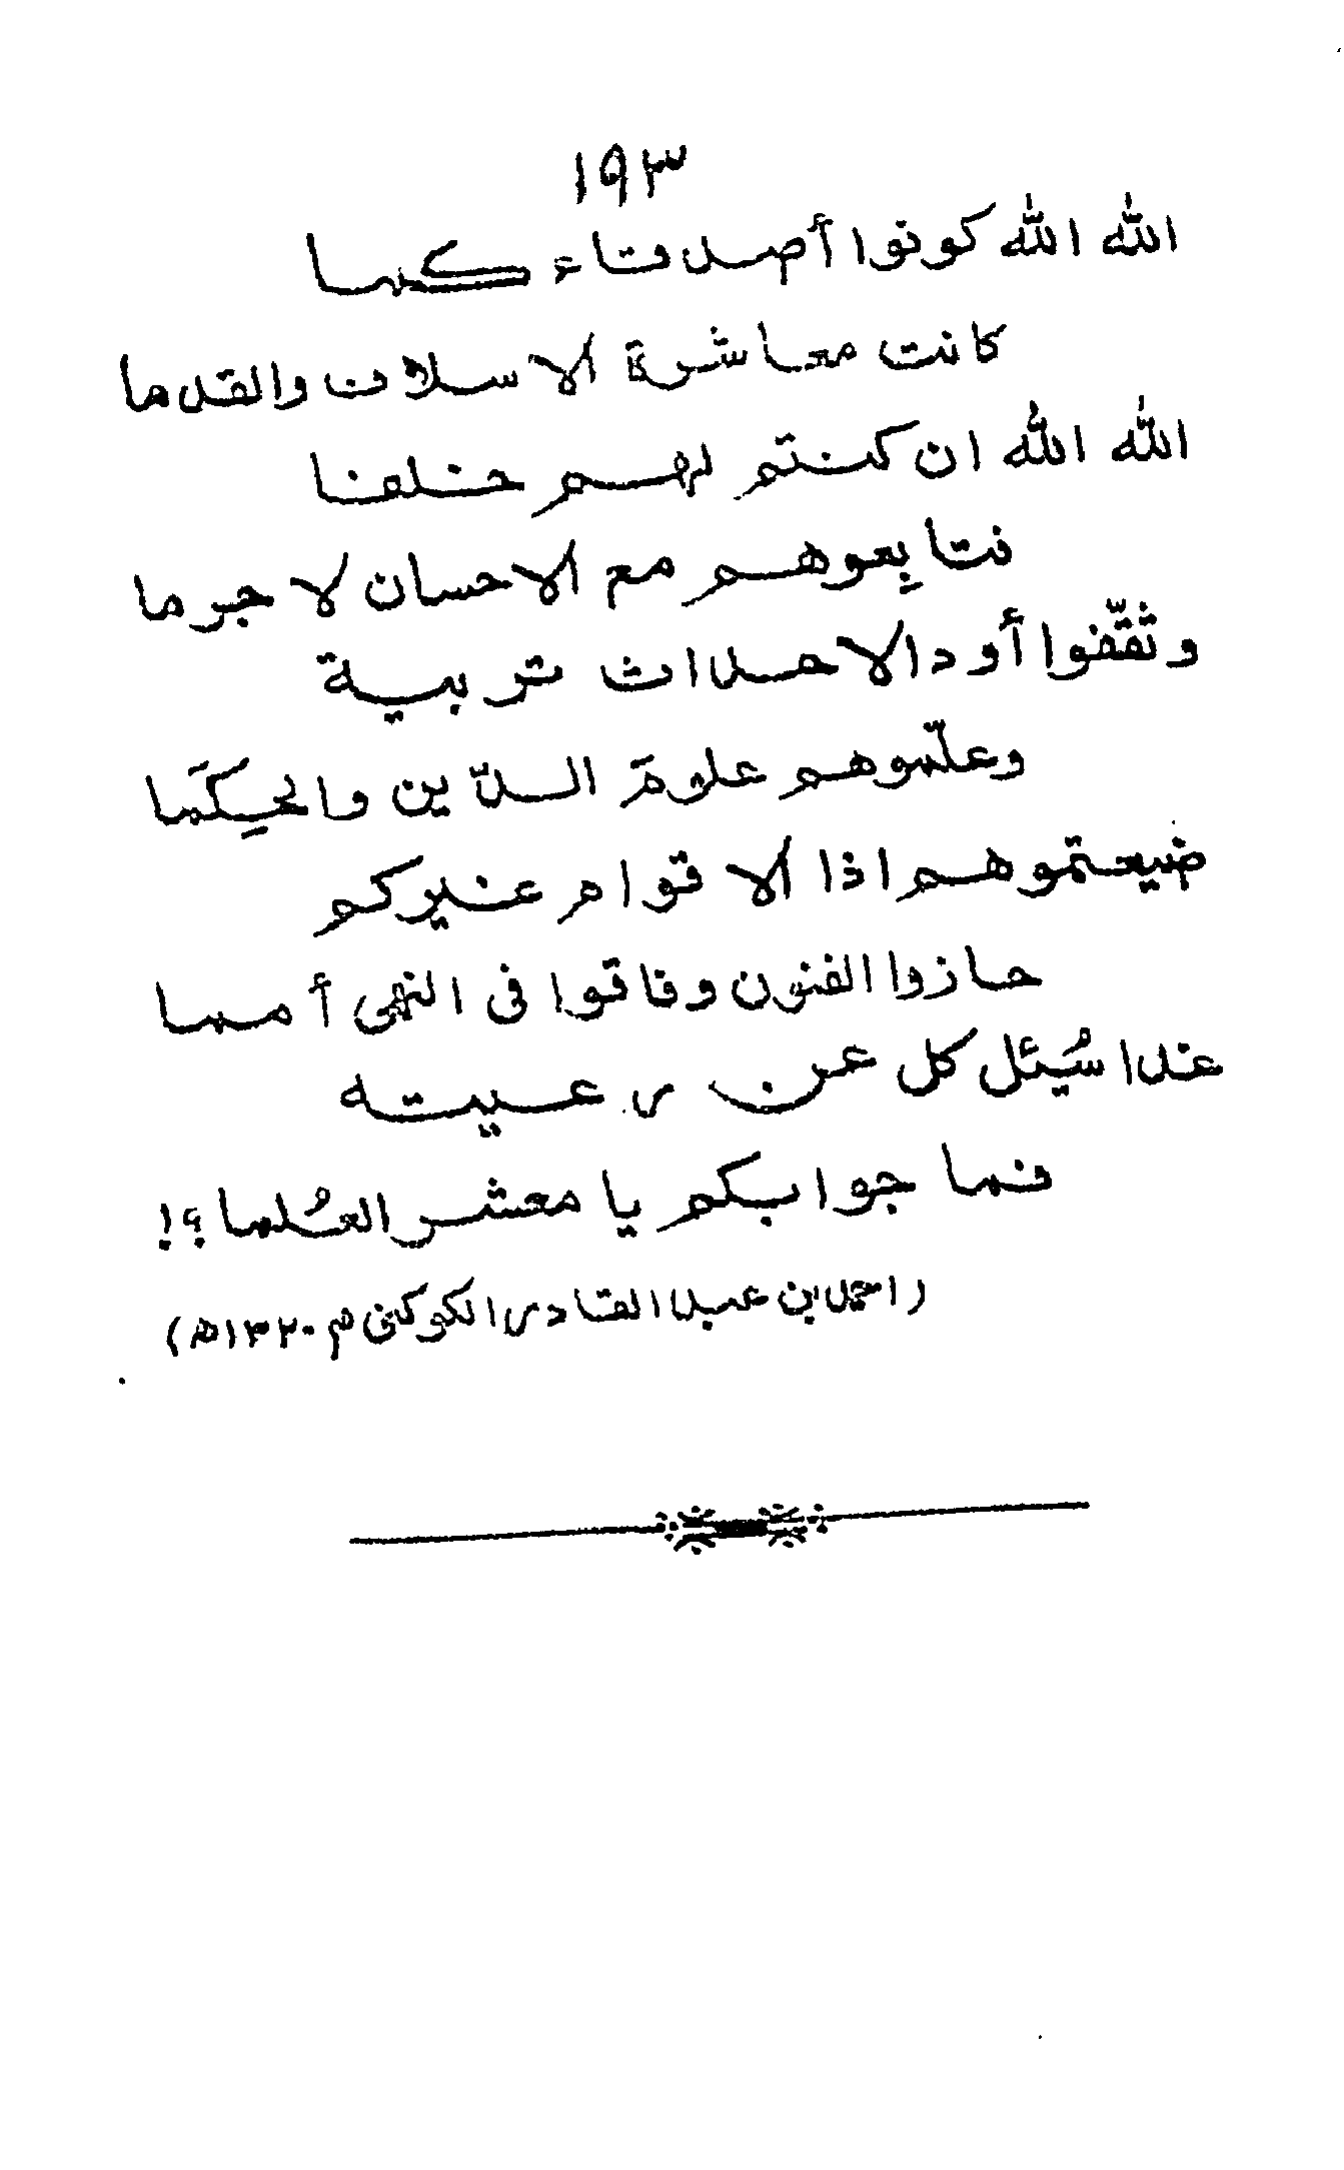 ١٩٣
الله الله كونوا أصدقاء كما
كانت معاشرة الاسلاف والقدما
الله الله ان كنتم لهم خلفنا
نتابِعوهم مع الاحسان لا جرما
وثقّفوا أود الاحداث تربية
وعلّموهم علومَ الدّين والحِكَما
ضيعتموهم اذا الاقوام غيركم
حازوا الفنون وفاقوا فى النهى أمما
غدا سُيئل كل عن رعيته
فما جوابكم يا معشر العُلما؟!
(احمد بن عبد القادر الكوكنى م ١٣٢٠هـ)